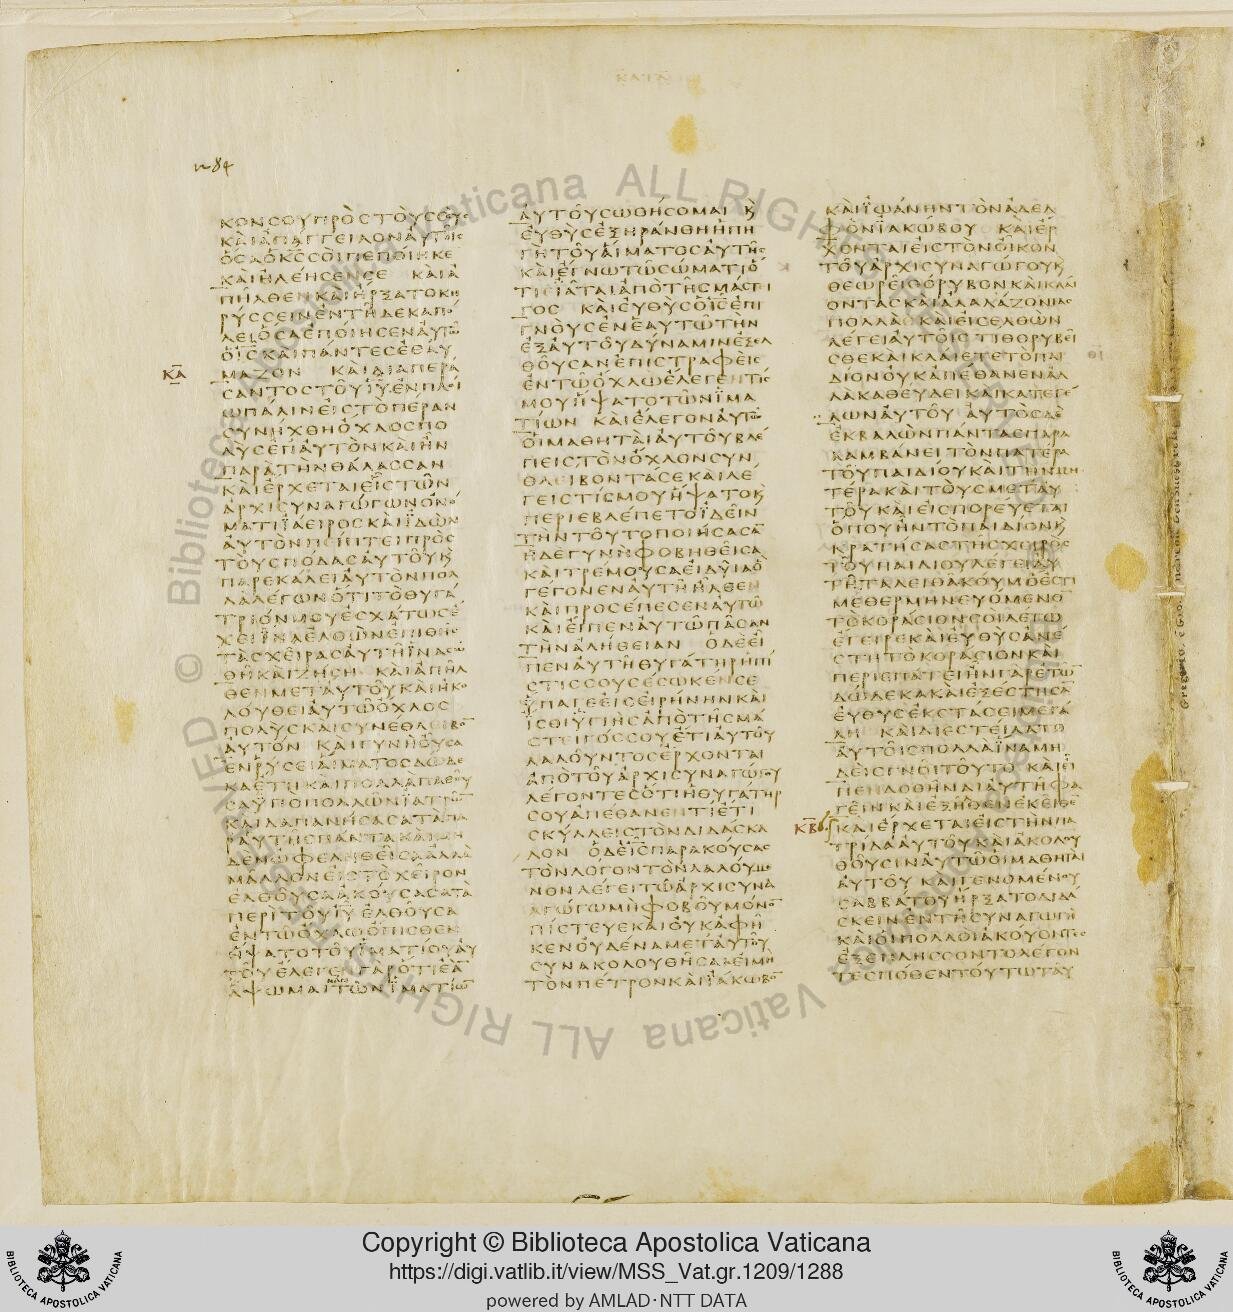 ΚΑΤΑ
n 84
ΚΟΝϹΟΥΠΡΟϹΤΟΥϹϹΟΥϹ
ΚΑΙΑΠΑΓΓΕΙΛΟΝΑΥΤΟΙϹ
ΟϹΑΟΚ̅Ϲ̅ϹΟΙΠΕΠΟΙΗΚΕ
ΚΑΙΗΛΕΗϹΕΝϹΕ ΚΑΙΑ
ΠΗΛΘΕΝΚΑΙΗΡΞΑΤΟΚΗ
ΡΥϹϹΕΙΝΕΝΤΗΔΕΚΑΠΟ
ΛΕΙΟϹΑΕΠΟΙΗϹΕΝΑΥΤΩ
ΟΙ̅Ϲ̅ΚΑΙΠΑΝΤΕϹΕΘΑΥ
ΜΑΖΟΝ ΚΑΙΔΙΑΠΕΡΑ
ΚΑ
ϹΑΝΤΟϹΤΟΥΙ̅Υ̅ΕΝΠΛΟΙ
ΩΠΑΛΙΝΕΙϹΤΟΠΕΡΑΝ
ϹΥΝΗΧΘΗΟΧΛΟϹΠΟ
ΛΥϹΕΠΑΥΤΟΝΚΑΙΗΝ
ΠΑΡΑΤΗΝΘΑΛΑϹϹΑΝ
ΚΑΙΕΡΧΕΤΑΙΕΙϹΤΩΝ
ΑΡΧΙϹΥΝΑΓΩΓΩΝΟΝΟ
ΜΑΤΙΪΑΕΙΡΟϹΚΑΙΪΔΩΝ
ΑΥΤΟΝΠΕΙΠΤΕΙΠΡΟϹ
ΤΟΥϹΠΟΔΑϹΑΥΤΟΥΚ
ΠΑΡΕΚΑΛΕΙΑΥΤΟΝΠΟΛ
ΛΑΛΕΓΩΝΟΤΙΤΟΘΥΓΑ
ΤΡΙΟΝΜΟΥΕϹΧΑΤΩϹΕ
ΧΕΙΪΝΑΕΛΘΩΝΕΠΙΘΗϹ
ΤΑϹΧΕΙΡΑϹΑΥΤΗΪΝΑϹΩ
ΘΗΚΑΙΖΗϹΗ ΚΑΙΑΠΗΛ
ΘΕΝΜΕΤΑΥΤΟΥΚΑΙΗΚΟ
ΛΟΥΘΕΙΑΥΤΩΟΧΛΟϹ
ΠΟΛΥϹΚΑΙϹΥΝΕΘΛΕΙΒΟ̅
ΑΥΤΟΝ ΚΑΙΓΥΝΗΟΥϹΑ
ΕΝΡΥϹΕΙΑΙΜΑΤΟϹΔΩΔΕ
ΚΑΕΤΗΚΑΙΠΟΛΛΑΠΑΘΟΥ
ϹΑΫΠΟΠΟΛΛΩΝΪΑΤΡΩ̅
ΚΑΙΔΑΠΑΝΗϹΑϹΑΤΑΠΑ
ΡΑΥΤΗϹΠΑΝΤΑΚΑΙΜΗ
ΔΕΝΩΦΕΛΗΘΕΙϹΑΑΛΛΑ
ΜΑΛΛΟΝΕΙϹΤΟΧΕΙΡΟΝ
ΕΛΘΟΥϹΑΑΚΟΥϹΑϹΑΤΑ
ΠΕΡΙΤΟΥΙ̅Υ̅ΕΛΘΟΥϹΑ
ΕΝΤΩΟΧΛΩΟΠΙϹΘΕΝ
ΗΨΑΤΟΤΟΥΪΜΑΤΙΟΥΑΥ
ΤΟΥΕΛΕΓΕΝΓΑΡΟΤΙΕΑ̅
ΑΨΩΜΑΙΤΩΝΪΜΑΤΙΩ̅
ΑΥΤΟΥϹΩΘΗϹΟΜΑΙ Κ
ΕΥΘΥϹΕΞΗΡΑΝΘΗΗΠΗ
ΓΗΤΟΥΑΙΜΑΤΟϹΑΥΤΗϹ
ΚΑΙΕΓΝΩΤΩϹΩΜΑΤΙΟ
ΤΙΕΙΑΤΑΙΑΠΟΤΗϹΜΑϹΤΙ
ΓΟϹ ΚΑΙΕΥΘΥϹΟΙ̅Ϲ̅ΕΠΙ
ΓΝΟΥϹΕΝΕΑΥΤΩΤΗΝ
ΕΞΑΥΤΟΥΔΥΝΑΜΙΝΕΞΕΛ
ΘΟΥϹΑΝΕΠΙϹΤΡΑΦΕΙϹ
ΕΝΤΩΟΧΛΩΕΛΕΓΕΝΤΙϹ
ΜΟΥΗΨΑΤΟΤΩΝΪΜΑ
ΤΙΩΝ ΚΑΙΕΛΕΓΟΝΑΥΤΩ
ΟΙΜΑΘΗΤΑΙΑΥΤΟΥΒΛΕ
ΠΕΙϹΤΟΝΟΧΛΟΝϹΥΝ
ΘΛΕΙΒΟΝΤΑϹΕΚΑΙΛΕ
ΓΕΙϹΤΙϹΜΟΥΗΨΑΤΟΚ
ΠΕΡΙΕΒΛΕΠΕΤΟΪΔΕΙΝ
ΤΗΝΤΟΥΤΟΠΟΙΗϹΑϹΑ̅
ΗΔΕΓΥΝΗΦΟΒΗΘΕΙϹΑ
ΚΑΙΤΡΕΜΟΥϹΑΕΙΔΥΙΑΟ
ΓΕΓΟΝΕΝΑΥΤΗΗΛΘΕΝ
ΚΑΙΠΡΟϹΕΠΕϹΕΝΑΥΤΩ
ΚΑΙΕΙΠΕΝΑΥΤΩΠΑϹΑΝ
ΤΗΝΑΛΗΘΕΙΑΝ ΟΔΕΕΙ
ΠΕΝΑΥΤΗΘΥΓΑΤΗΡΗΠΙ
ϹΤΙϹϹΟΥϹΕϹΩΚΕΝϹΕ
ΥΠΑΓΕΕΙϹΕΙΡΗΝΗΝΚΑΙ
ΙϹΘΙΥΓΙΗϹΑΠΟΤΗϹΜΑ
ϹΤΕΙΓΟϹϹΟΥΕΤΙΑΥΤΟΥ
ΛΑΛΟΥΝΤΟϹΕΡΧΟΝΤΑΙ
ΑΠΟΤΟΥΑΡΧΙϹΥΝΑΓΩΓΟΥ
ΛΕΓΟΝΤΕϹΟΤΙΗΘΥΓΑΤΗΡ
ϹΟΥΑΠΕΘΑΝΕΝΤΙΕΤΙ
ϹΚΥΛΛΕΙϹΤΟΝΔΙΔΑϹΚΑ
ΛΟΝ ΟΔΕΙ̅Ϲ̅ΠΑΡΑΚΟΥϹΑϹ
ΤΟΝΛΟΓΟΝΤΟΝΛΑΛΟΥΜΕ
ΝΟΝΛΕΓΕΙΤΩΑΡΧΙϹΥΝΑ
ΓΩΓΩΜΗΦΟΒΟΥΜΟΝΟ̅
ΠΙϹΤΕΥΕΚΑΙΟΥΚΑΦΗ
ΚΕΝΟΥΔΕΝΑΜΕΤΑΥΤΟΥ
ϹΥΝΑΚΟΛΟΥΘΗϹΑΙΕΙΜΗ
ΤΟΝΠΕΤΡΟΝΚΑΙΪΑΚΩΒΟ̅
ΚΑΙΪΩΑΝΗΝΤΟΝΑΔΕΛ
ΦΟΝΪΑΚΩΒΟΥ ΚΑΙΕΡ
ΧΟΝΤΑΙΕΙϹΤΟΝΟΙΚΟΝ
ΤΟΥΑΡΧΙϹΥΝΑΓΩΓΟΥΚ
ΘΕΩΡΕΙΘΟΡΥΒΟΝΚΑΙΚΛΑΙ
ΟΝΤΑϹΚΑΙΑΛΑΛΑΖΟΝΤΑϹ
ΠΟΛΛΑΚΑΙΕΙϹΕΛΘΩΝ
ΛΕΓΕΙΑΥΤΟΙϹΤΙΘΟΡΥΒΕΙ
ϹΘΕΚΑΙΚΛΑΙΕΤΕΤΟΠΑΙ
ΔΙΟΝΟΥΚΑΠΕΘΑΝΕΝΑΛ
ΛΑΚΑΘΕΥΔΕΙΚΑΙΚΑΤΕΓΕ
ΛΩΝΑΥΤΟΥ ΑΥΤΟϹΔΕ
ΕΚΒΑΛΩΝΠΑΝΤΑϹΠΑΡΑ
ΛΑΜΒΑΝΕΙΤΟΝΠΑΤΕΡΑ
ΤΟΥΠΑΙΔΙΟΥΚΑΙΤΗΝΜΗ
ΤΕΡΑΚΑΙΤΟΥϹΜΕΤΑΥ
ΤΟΥΚΑΙΕΙϹΠΟΡΕΥΕΤΑΙ
ΟΠΟΥΗΝΤΟΠΑΙΔΙΟΝΚ
ΚΡΑΤΗϹΑϹΤΗϹΧΕΙΡΟϹ
ΤΟΥΠΑΙΔΙΟΥΛΕΓΕΙΑΥ
ΤΗΤΑΛΕΙΘΑΚΟΥΜΟΕϹΤΙ
ΜΕΘΕΡΜΗΝΕΥΟΜΕΝΟ̅
ΤΟΚΟΡΑϹΙΟΝϹΟΙΛΕΓΩ
ΕΓΕΙΡΕΚΑΙΕΥΘΥϹΑΝΕ
ϹΤΗΤΟΚΟΡΑϹΙΟΝΚΑΙ
ΠΕΡΙΕΠΑΤΕΙΗΝΓΑΡΕΤΩ̅
ΔΩΔΕΚΑΚΑΙΕΞΕϹΤΗϹΑ̅
ΕΥΘΥϹΕΚϹΤΑϹΕΙΜΕΓΑ
ΛΗ ΚΑΙΔΙΕϹΤΕΙΛΑΤΟ
ΑΥΤΟΙϹΠΟΛΛΑΪΝΑΜΗ
ΔΕΙϹΓΝΟΙΤΟΥΤΟΚΑΙΕΙ
ΠΕΝΔΟΘΗΝΑΙΑΥΤΗΦΑ
ΓΕΙΝΚΑΙΕΞΗΛΘΕΝΕΚΕΙΘΕ̅
ΚΒ
ΚΑΙΕΡΧΕΤΑΙΕΙϹΤΗΝΠΑ
ΤΡΙΔΑΑΥΤΟΥΚΑΙΑΚΟΛΟΥ
ΘΟΥϹΙΝΑΥΤΩΟΙΜΑΘΗΤΑΙ
ΑΥΤΟΥ ΚΑΙΓΕΝΟΜΕΝΟΥ
ϹΑΒΒΑΤΟΥΗΡΞΑΤΟΔΙΔΑ
ϹΚΕΙΝΕΝΤΗϹΥΝΑΓΩΓΗ
ΚΑΙΟΙΠΟΛΛΟΙΑΚΟΥΟΝΤΕϹ
ΕΞΕΠΛΗϹϹΟΝΤΟΛΕΓΟΝ
ΤΕϹΠΟΘΕΝΤΟΥΤΩΤΑΥ
Copyright © Biblioteca Apostolica Vaticana
https://digi.vatlib.it/view/MSS_Vat.gr.1209/1288
powered by AMLAD·NTT DATA